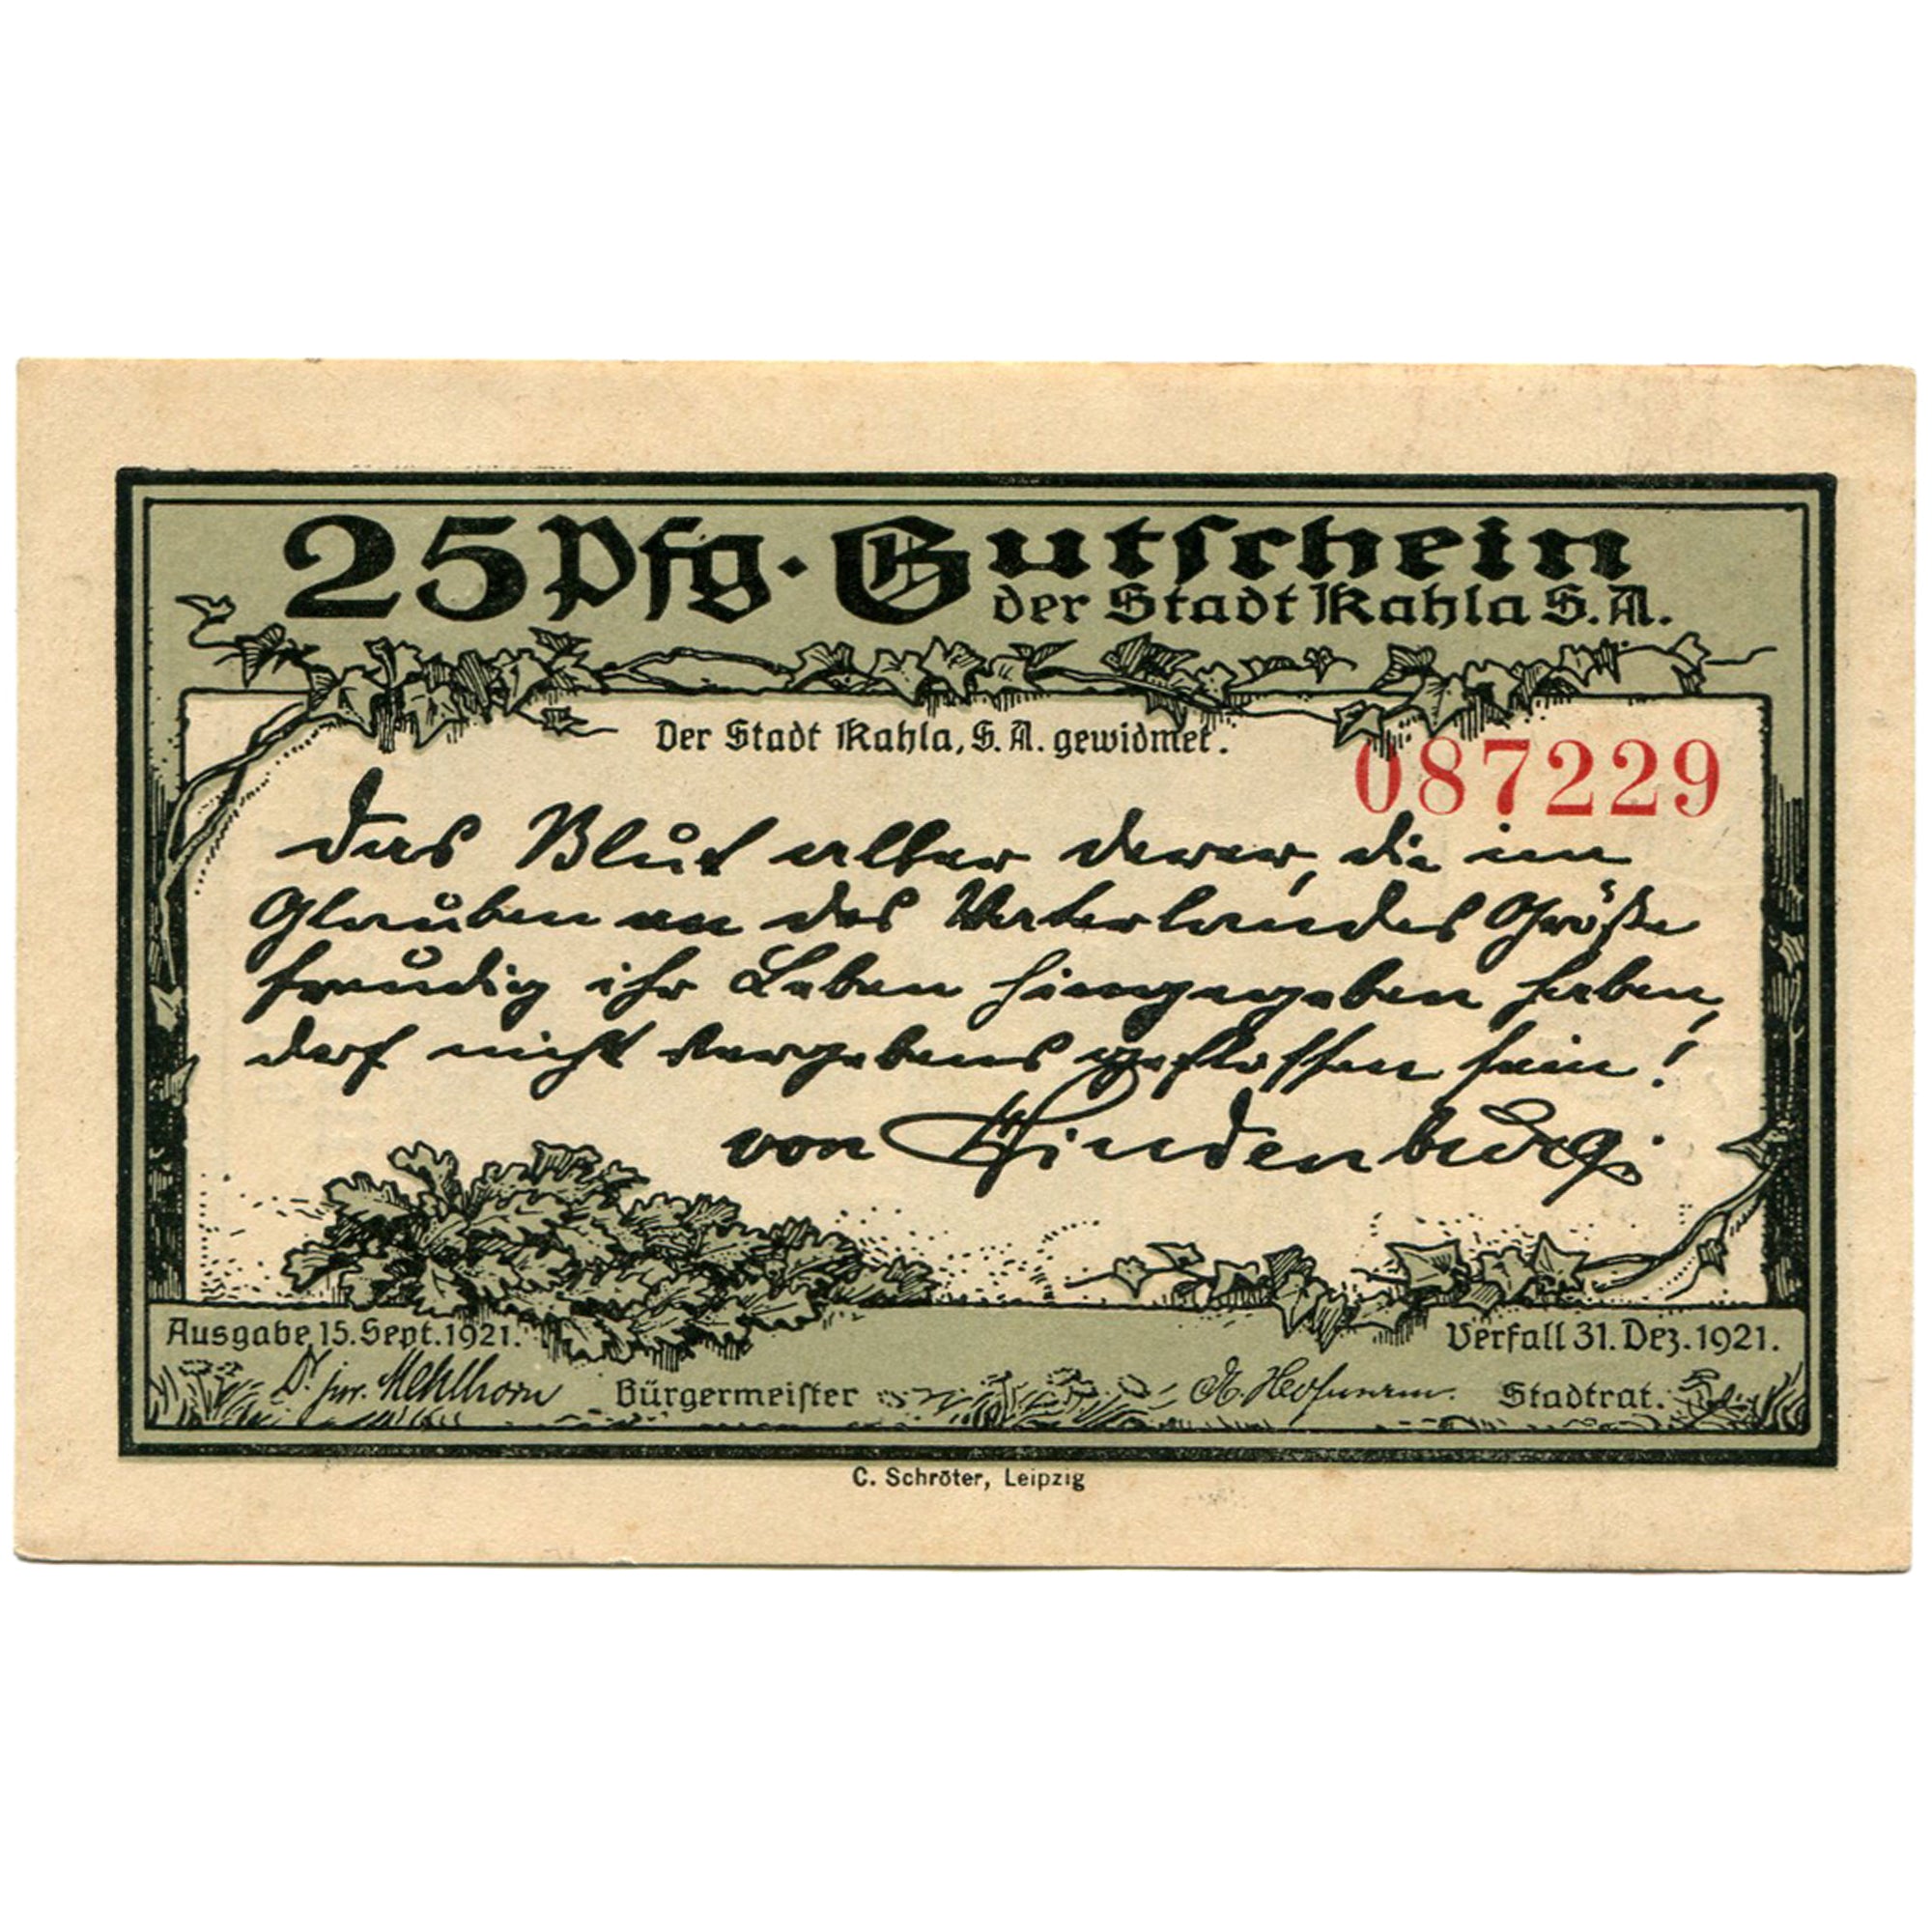 25 Pfg · Gutschein
der Stadt Kahla S. A.
Der Stadt Kahla, S. A. gewidmet.
087229
Das Blut aller derer, die im
Glauben an des Vaterlandes Größe
freudig ihr Leben hingegeben haben,
darf nicht vergebens geflossen sein!
von Hindenburg.
Ausgabe 15. Sept. 1921.
Verfall 31. Dez. 1921.
Dr. jur. Mehlhorn Bürgermeister
Stadtrat.
C. Schröter, Leipzig